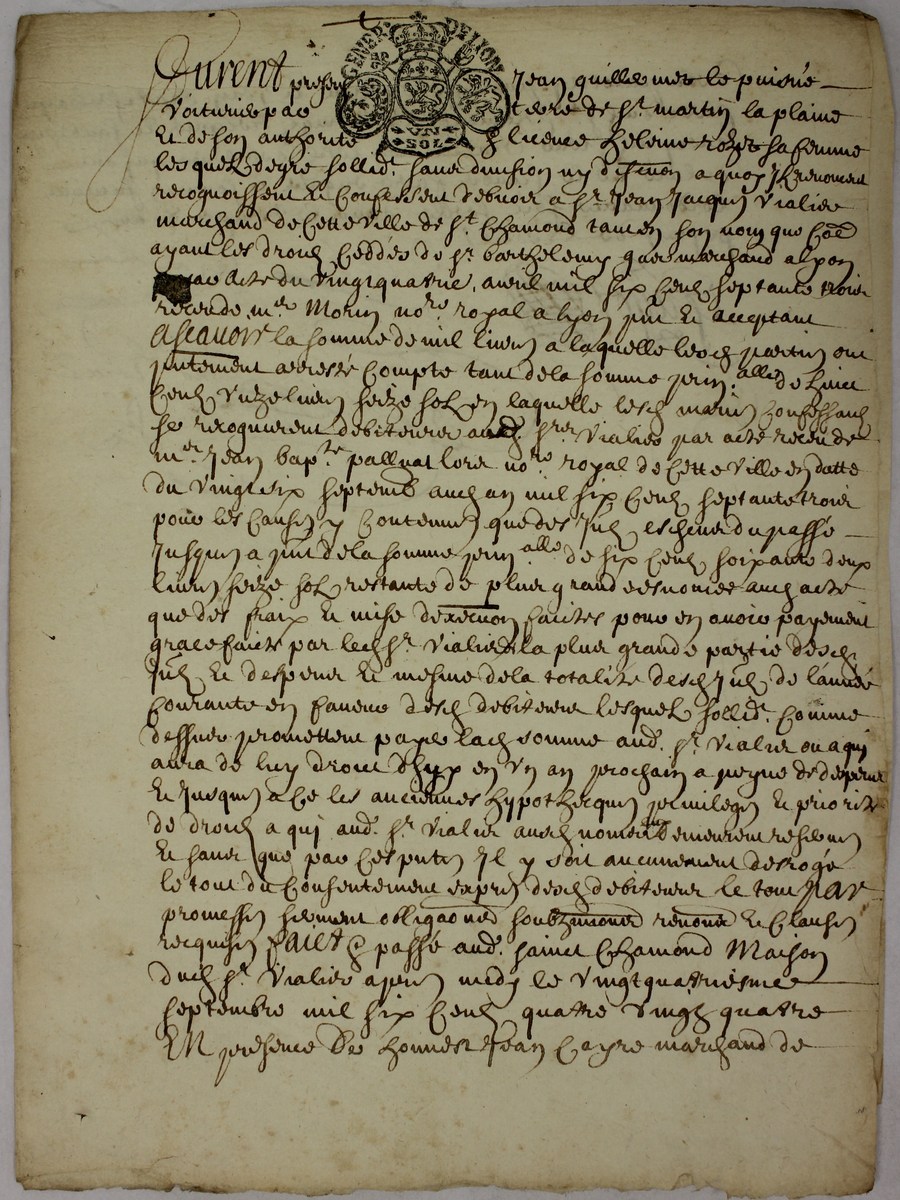 GENER. DE LION
VN
SOL
Furent presen Jean guillemet le puisné
voiturier par terre de st. martin la plaine
Et de son authorité & licence heleine sa femme
lesquelz degre sollidt. sans division ny a quoy Ilz renoncent
recognoissent Et Confessent debvoir a sr. Jean Jacques vialier
marchand de Cette ville de st. Chamond tant en son nom que Coe
ayant les droitz Ceddés de sr. barthelemy marchand a lyon
par acte du vingtquatrie. avril mil six Centz septante trois
receu de me. Morin nore. royal a lyon pnt Et acceptant
Ascavoir la somme de mil livres a laquelle lesd. parties ont
pntement arresté Compte tant de la somme prin.alle de
Centz unze livres seize solz en laquelle lesd. mariés Confessantz
se recogneurent debiteurs aud. sr. vialier par acte receu de
me. Jean bapte. palluat nore. royal de Cette ville en datte
du vingtsix septemb. aud. an mil six Centz septante trois
pour les Causes y Contenues que des Intz. escheus du passé
Jusques a pnt de la somme prin.alle de six Centz soixante deux
livres seize solz restante de plus grande enoncée aud. acte
que des fraix Et mise dexecuon faictes pour en avoir payement
grace faicte par led. sr. vialier de la plus grande partie desd.
Intz. Et despens Et mesme de la totalité desd. Intz. de lannée
Courante en faveur desd. debiteurs lesquelz sollidt. Comme
dessus promettent payer lad. somme aud. sr. vialier ou a qui
aura de luy droict dhuy en un an prochain a peyne de despens
Et Jusques a Ce les anciennes hypotheques privileges Et priorité
de droitz a qui aud. sr. vialier ausd. noms demeurent reservés
Et sans que par Ces pntes Il y soit aucunement desrogé
le tout du Consentement exprés desd. debiteurs le tout par
promesses serment obligaons soubzmissions renons Et Clauses
requises faict & passé aud. sainct Chamond Maison
dud. sr. vialier apres midy le vingtquatriesme
septembre mil six Centz quatre vingtz quatre
EN presence de honnest Jean marchand de